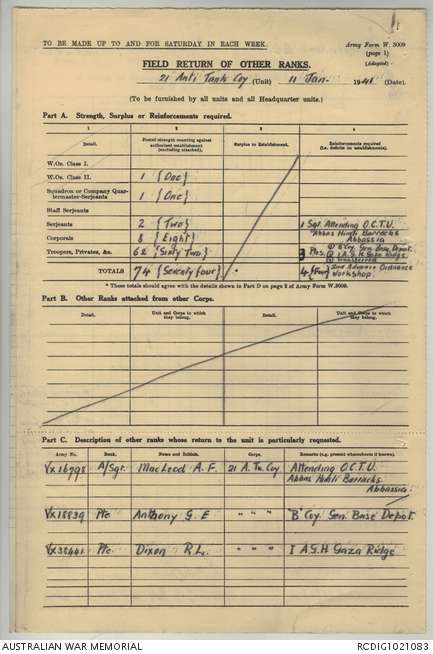 TO BE MADE UP TO AND FOR SATURDAY IN EACH WEEK.
Army Form W. 3009
(page 1)
(Adapted)
FIELD RETURN OF OTHER RANKS.
21 Anti Tank Coy (Unit) 11 Jan. 1941 (Date)
(To be furnished by all units and all Headquarter units.)
Part A. Strength, Surplus or Reinforcements required.
1 2 3 4
Detail. Posted strength counting against authorized establishment (excluding attached). Surplus to Establishment. Reinforcements required (i.e. deficits on establishment).
W.Os. Class I.
W.Os. Class II. 1 {One}
Squadron or Company Quarter-
termaster-Serjeants 1 {One}
Staff Serjeants
Serjeants 2 {Two} 1 Sgt. Attending O.C.T.U.
Abbas Hinti Barracks
Abbassia
Corporals 8 {Eight}
Troopers, Privates, &c. 62 {Sixty Two} 3 Ptes. (1) B Coy. Gen. Base Depot.
(2) 1 A.G.H. Gaza Ridge
(3) transferred
2nd Advance Ordnance
Workshop.
TOTALS 74 {Seventy four} * 4 {Four}
* These totals should agree with the details shown in Part D on page 2 of Army Form W.3009.
Part B. Other Ranks attached from other Corps.
Detail. Unit and Corps to which they belong. Detail. Unit and Corps to which they belong.
Part C. Description of other ranks whose return to the unit is particularly requested.
Army No. Rank. Name and Initials. Corps. Remarks (e.g. present whereabouts if known).
VX16798 A/Sgt. MacLeod A. F. 21 A. Tk. Coy Attending O.C.T.U.
Abbas Hinti Barracks
Abbassia
VX18839 Pte. Anthony G. E " " " "B" Coy Gen. Base Depot.
VX38441 Pte. Dixon R.L. " " " 1 A.G.H Gaza Ridge
AUSTRALIAN WAR MEMORIAL
RCDIG1021083